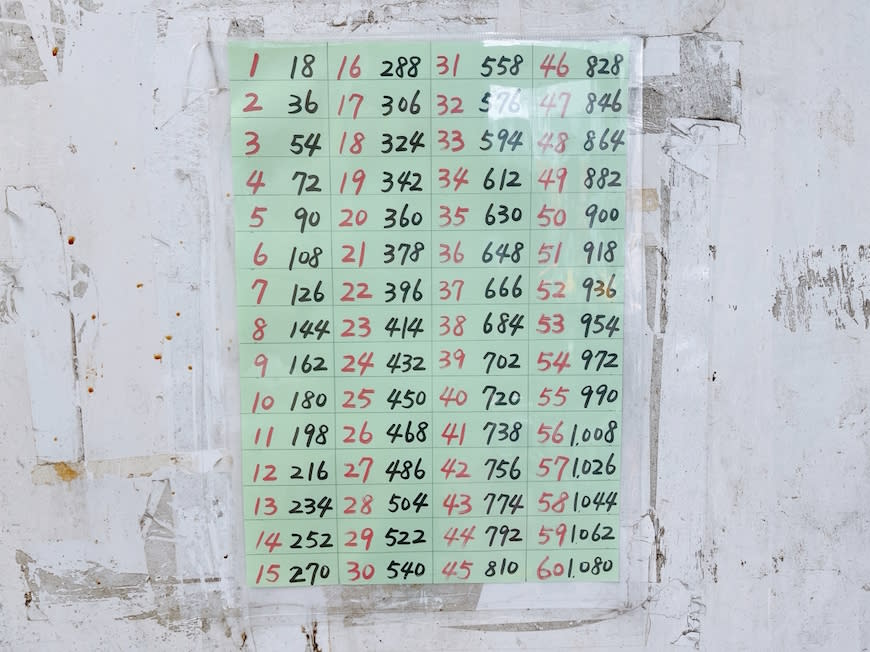 1 18 16 288 31 558 46 828
2 36 17 306 32 576 47 846
3 54 18 324 33 594 48 864
4 72 19 342 34 612 49 882
5 90 20 360 35 630 50 900
6 108 21 378 36 648 51 918
7 126 22 396 37 666 52 936
8 144 23 414 38 684 53 954
9 162 24 432 39 702 54 972
10 180 25 450 40 720 55 990
11 198 26 468 41 738 56 1,008
12 216 27 486 42 756 57 1,026
13 234 28 504 43 774 58 1044
14 252 29 522 44 792 59 1062
15 270 30 540 45 810 60 1,080